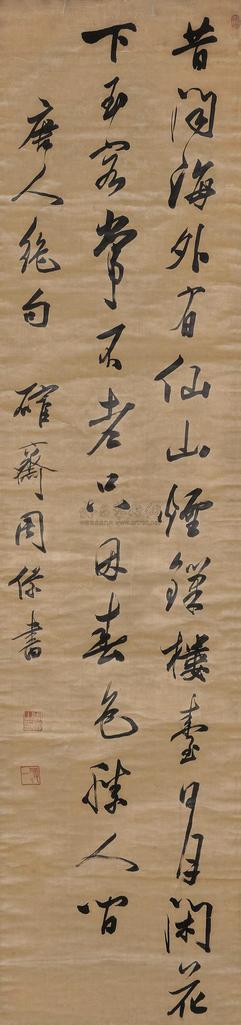 昔聞海外有仙山煙鎖樓臺日月閑花
下玉容常不老只因春色勝人間
唐人絕句 確齋周書